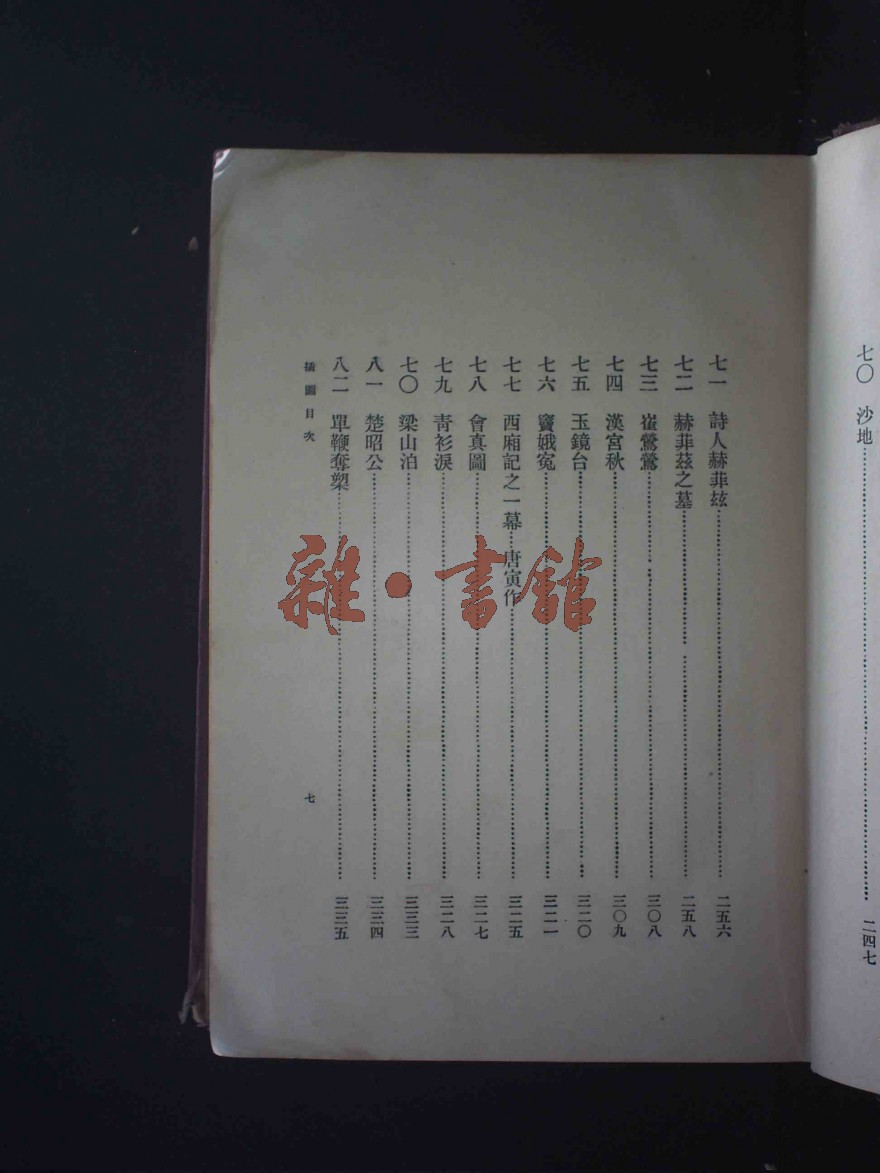 七〇　沙地……二四七
七一　詩人赫菲玆……二五六
七二　赫菲茲之墓……二五八
七三　崔鶯鶯……三〇八
七四　漢宮秋……三〇九
七五　玉鏡台……三二〇
七六　竇娥冤……三二一
七七　西廂記之一幕…唐寅作……三二五
七八　會真圖……三二七
七九　青衫淚……三二八
七〇　梁山泊……三三三
八一　楚昭公……三三四
八二　單鞭奪槊……三三五
插圖目次
七
雜·書館